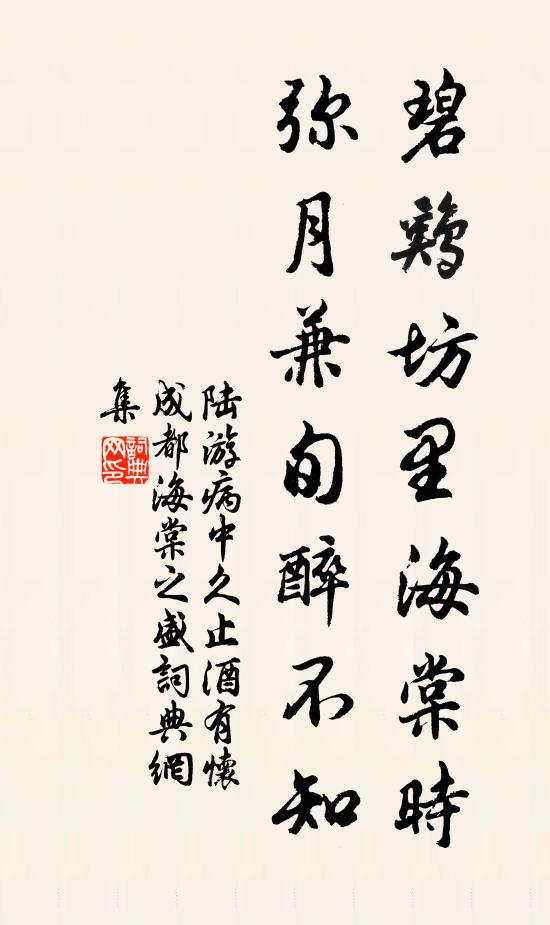 碧鷄坊里海棠時
弥月兼旬醉不知
陆游病中久止酒有懷
成都海棠之盛詞典網
集
詞典網印